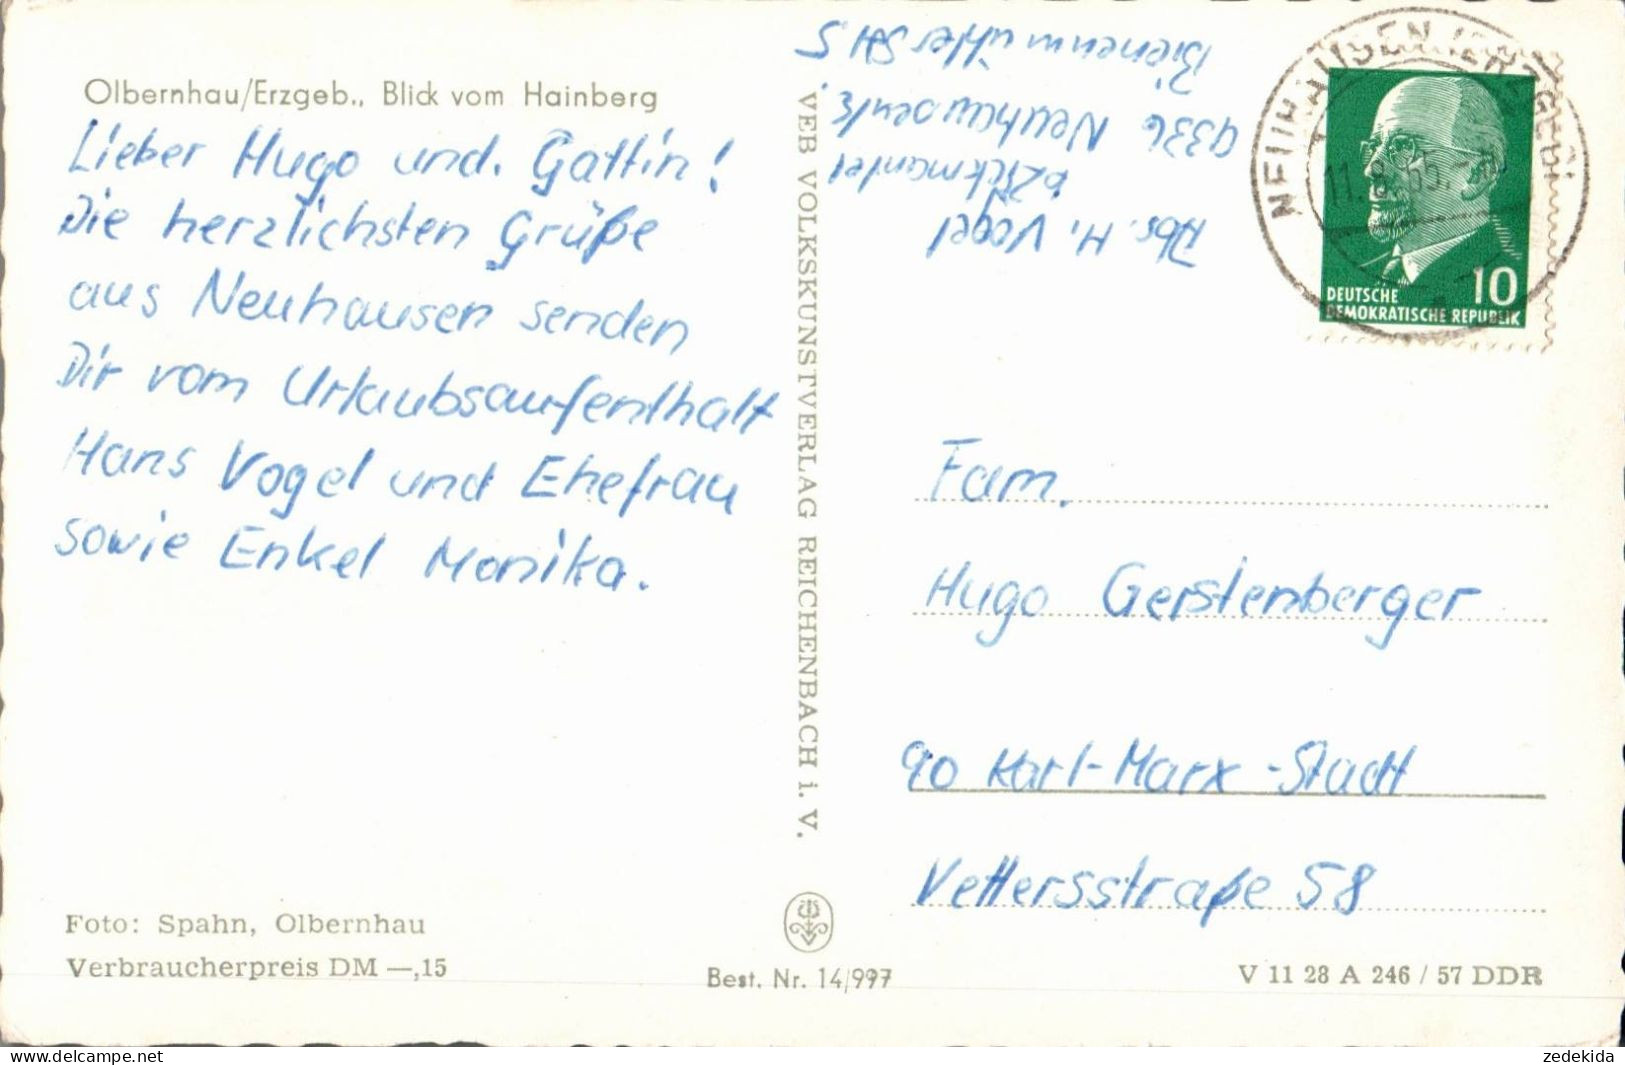 Olbernhau/Erzgeb., Blick vom Hainberg
Lieber Hugo und. Gattin!
Die herzlichsten Grüße
aus Neuhausen senden
Dir vom Urlaubsaufenthalt
Hans Vogel und Ehefrau
sowie Enkel Monika.
Foto: Spahn, Olbernhau
Verbraucherpreis DM —,15
VEB VOLKSKUNSTVERLAG REICHENBACH i. V.
Best. Nr. 14/997
Abs. H. Vogel
9336
DEUTSCHE
DEMOKRATISCHE REPUBLIK
10
NEUHAUSEN (ERZGEB)
Fam.
Hugo Gerstenberger
90 Karl-Marx-Stadt
Vettersstraße 58
V 11 28 A 246 / 57 DDR
www.delcampe.net
zedekida